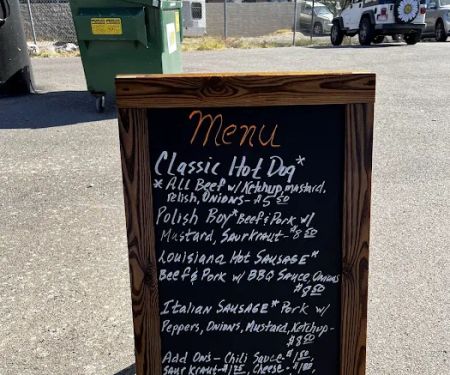 Menu
Classic Hot Dog*
*All Beef w/ Ketchup, mustard,
Relish, Onions - $5.50
Polish Boy* Beef & Pork w/
Mustard, Saurkraut - $8.50
Louisiana Hot Sausage*
Beef & Pork w/ BBQ Sauce, Onions
$8.50
Italian Sausage* Pork w/
Peppers, Onions, Mustard, Ketchup -
$8.50
Add Ons - Chili Sauce - $1.50,
Saur Kraut - $1.25, Cheese - $1.00,